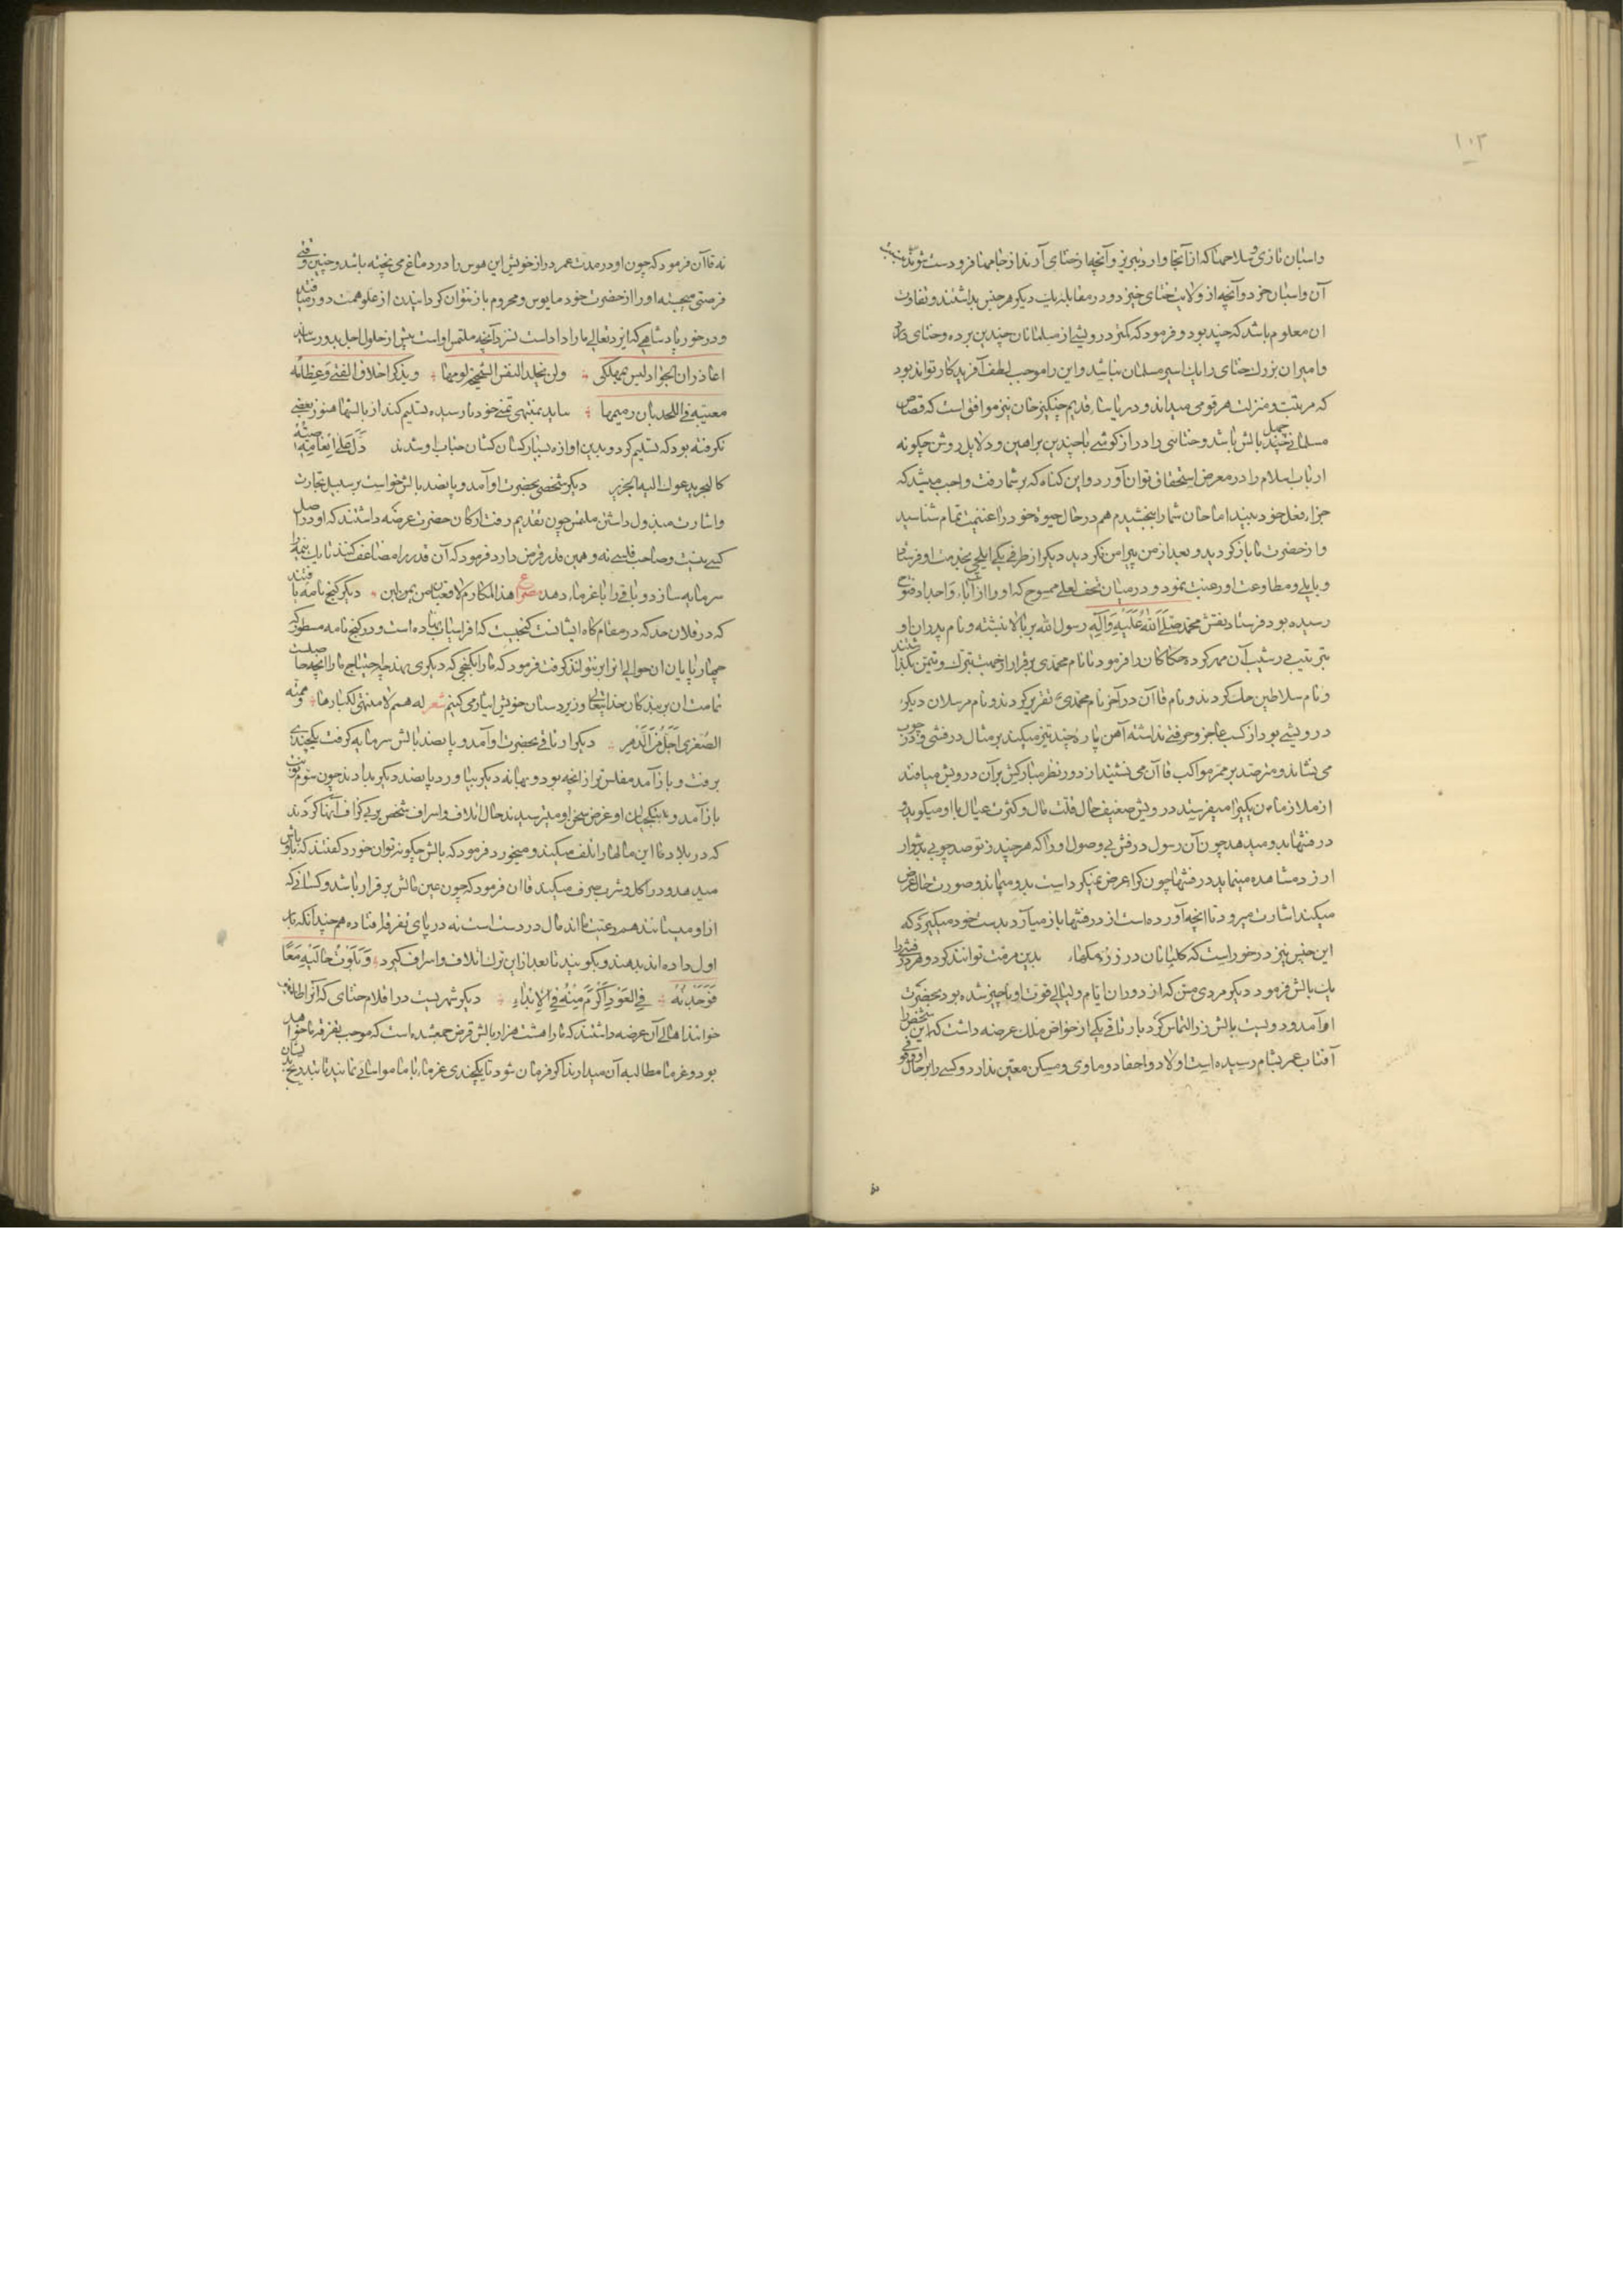 ۱۰۳
واسبان تازی و سلاحها که از آنجا وارد تبریز و آنچه از ختای آرند از جامها فرودست تر
آن واسبان خرد و آنچه از ولایت ختای خیزد و در مقابله یک دیکر هر جنس بداشتند و تفاوت
ان معلوم باشد که چند بود و فرمود که کمتر درویشی از مسلمانان چندین برده و ختای دارد
و امیران بزرک ختای را یک اسیر مسلمان نباشد و این را موجب لطف آفریدکار تواند بود
که مرتبت و منزلت هر قومی میداند و در یاساء قدیم چنکیز خان نیز موافق است که قصاص
مسلمانی چهل بالش باشد و ختایی را دراز کوشی با چندین براهین و دلایل روشن چکونه
ارباب اسلام را در معرض استخفاف توان آورد و این کناه که بر شما رفت واجب میشد که
جزاء فعل خود ببیند اما جان شما را ببخشیدم هم در حال حیوة خود را غنیمت تمام شناسید
و از حضرت ما باز کردید و بعد از من پیرامن نکردید دیکر از طرفی یکی ایلچی بخدمت او فرستاد
و بایلی و مطاوعت او رغبت نمود و در میان تحف لعلی ممسوح که او را از آباء و اجداد فتوح
رسیده بود فرستاد نقش محمد صلی الله علیه وآله رسول الله بر بالا نبشته و نام پدران او
بترتیب در شیب آن مهر کرده حکاکان را فرمود تا نام محمدی برقرار از جهت تبرک و تیمن بکذاشتند
و نام سلاطین حک کردند و نام قاآن در آخر نام محمدی تقریر کردند و نام مرسلان دیکر
درویشی بود از کسب عاجز و حرفتی نداشته آهن پارۀ چند تیز میکند بر مثال درفشی و در چوب
می نشاند و مترصد بر ممر مواکب قاآن می نشیند از دور نظر مبارکش بر آن درویش میافتد
از ملازمان یکی را میفرستد درویش ضعیف حال قلت مال و کثرت عیال با او میکوید و
درفشها بدو میدهد چون آن رسول درفش بی وصول او را که هر چند ز تو صد چوبی بدشوار
ارزد مشاهده مینماید درفشها چون کرا عرض نمیکرد است بدو میماند و صورت حال عرض
میکند اشارت میرود تا انچه آورده است از درفشها باز میآرد بدست خود میکیرد که
این جنس نیز در خور است که کله بانان درز زۀ مکهاء بدین مرمت توانند کرد و هر درفشی را
یک بالش فرمود دیکر مردی مسن که از دوران ایام و لیالی قوت او ناچیز شده بود بحضرت
او آمد و دویست بالش زر التماس کرد بارتاقی یکی از خواص ملک عرضه داشت که این شخص را
آفتاب عمر بشام رسیده است و اولاد و احفاد و ماوی و مسکن معین ندارد و کسی را بر حال او وقوفی
نه قاآن فرمود که چون او در مدت عمر دراز خویش این هوس را در دماغ می پخته باشد و چنین وقتی
فرصتی میجسته او را از حضرت خود مایوس و محروم باز نتوان کردانیدن از علو همت دور میافتد
و در خور پادشاهی که ایزد تعالی ما را داداست نسزد آنچه ملتمس او است پیش از حلول اجل بدو رسانید
اعاذل ان الجود لیس بمهلکی ولن یخلد النفس الشحیحة لومها ویذکر اخلاق الفتی وعظامه
مغیبة فی اللحد بال رمیمها شاید بمنتهی تمنی خود نارسیده تسلیم کند از بالشها هنوز بعضی
نکرفته بود که تسلیم کرد و بدین اوازه بسیار کسان کشان جناب او شدند دل علی انعامه صیته
کالبحر یدعوک الیه الخریر دیکر شخصی بحضرت او آمد و پانصد بالش خواست بر سبیل تجارت
واشارت مبذول داشتن ملتمس چون تقدیم رفت ارکان حضرت عرضه داشتند که او در اصل
کسی نیست و صاحب فلسی نه و همین قدر قرض دارد فرمود که آن قدر را مضاعف کنند تا یک نیمه را
سرمایه سازد و باقی را با غرماء دهد ع هذا المکارم لا قعبان من لبن دیکر کنج نامه یافتند
که در فلان حد که در مقام کاه ایشانست کنجیست که افراسیاب نهاده است و در کنج نامه مسطور که
چهارپایان ان حوالی انرا بر نتوانند کرفت فرمود که ما را بکنجی که دیکری نهد چه احتیاج ما را انچه حاصلست
تمامت ان بر بندکان خدای تعالی و زیردستان خویش ایثار می کنیم شعر له همم لا منتهی لکبارها وهمته
الصغری اجل من الدهر دیکر ارتاقی بحضرت او آمد و پانصد بالش سرمایه کرفت یکچندی
برفت و باز آمد مفلس تر از انچه بود و بهانه دیکر بیاورد پانصد دیکر بدادند چون سوم نوبت
باز آمد و بیتکچیان او عرض سخن او میترسیدند حال اتلاف و اسراف شخص بر بی کزاف انها کردند
که در بلاد ما این مالها را تلف میکند و میخورد فرمود که بالش چکونه توان خورد کفتند که باوباش
میدهد و در اکل و شرب صرف میکند قاان فرمود که چون عین بالش برقرار باشد و کسانی که
از او میستانند هم رعیت مااند مال در دست است نه در پای تفرقه افتاده هم چندانکه بار
اول داده اند بدهند و بکویند تا بعد از این ترک اتلاف و اسراف کیرد وبلوت حالیه معا
فوجدته فی العود اکرم منه فی الابتداء دیکر شهریست در اقلام ختای که آنرا
خوانند اهالی آن عرضه داشتند که ما را هشت هزار بالش قرض جمع شده است که موجب تفرقه ما خواهد
بود و غرما مطالبه آن میدارند اکر فرمان شود تا یکچندی غرماء با ما مواسائی نمایند تا بتدریج بدیشان